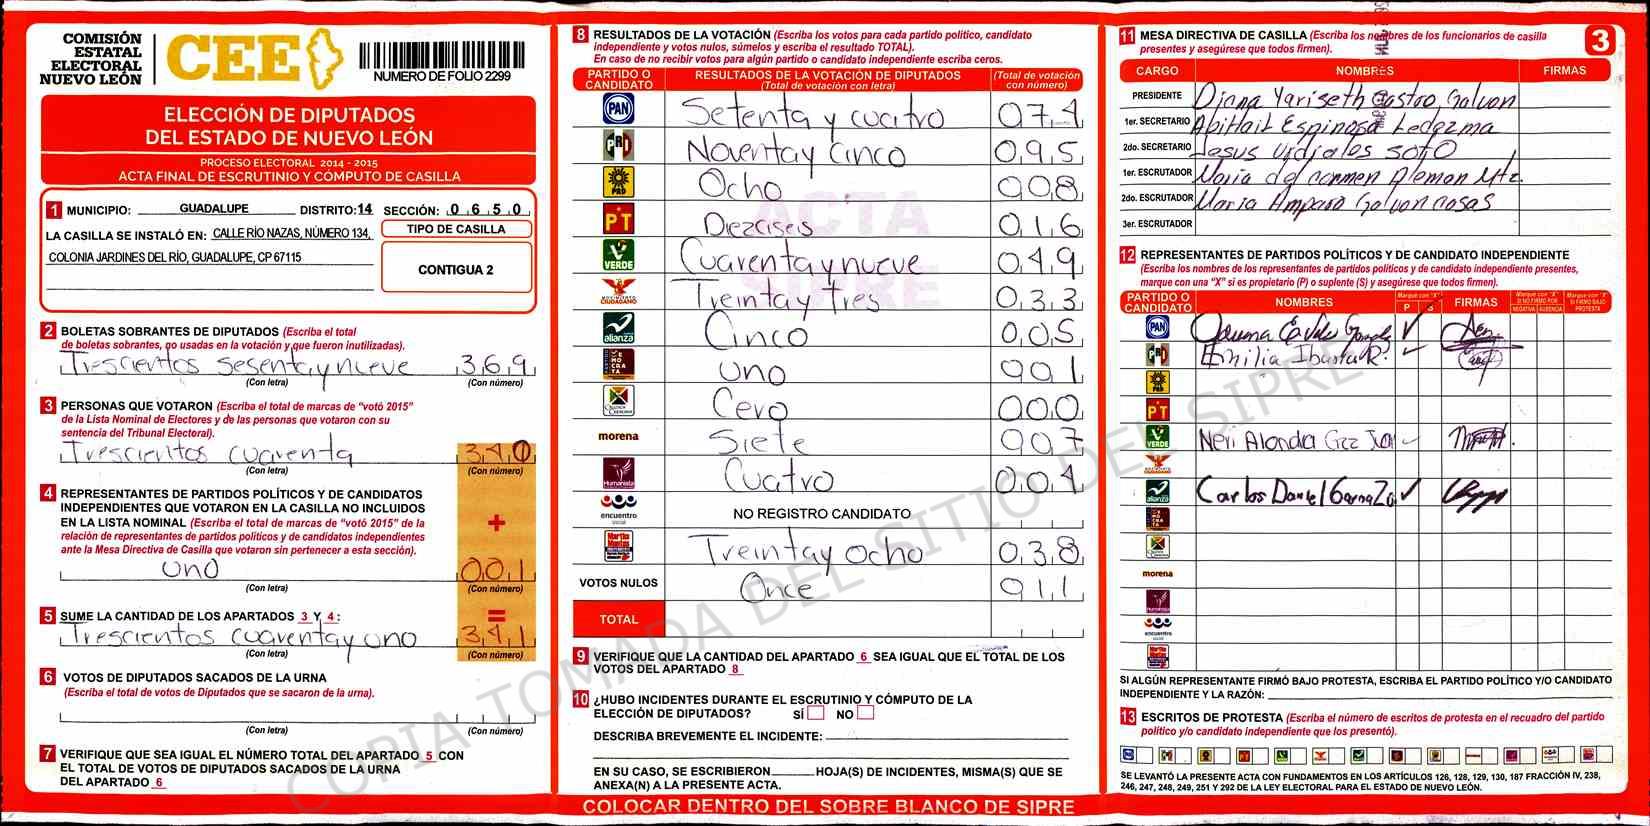 COMISIÓN
ESTATAL
ELECTORAL
NUEVO LEÓN
CEE
NUMERO DE FOLIO 2299
ELECCIÓN DE DIPUTADOS
DEL ESTADO DE NUEVO LEÓN
PROCESO ELECTORAL 2014 - 2015
ACTA FINAL DE ESCRUTINIO Y CÓMPUTO DE CASILLA
1 MUNICIPIO: GUADALUPE DISTRITO: 14 SECCIÓN: 0 6 5 0
LA CASILLA SE INSTALÓ EN: CALLE RÍO NAZAS, NÚMERO 134,
COLONIA JARDINES DEL RÍO, GUADALUPE, CP 67115
TIPO DE CASILLA
CONTIGUA 2
2 BOLETAS SOBRANTES DE DIPUTADOS (Escriba el total
de boletas sobrantes, no usadas en la votación y que fueron inutilizadas).
Trescientos sesenta y nueve 3 6 9
(Con letra) (Con número)
3 PERSONAS QUE VOTARON (Escriba el total de marcas de "votó 2015"
de la Lista Nominal de Electores y de las personas que votaron con su
sentencia del Tribunal Electoral).
Trescientos cuarenta 3 4 0
(Con letra) (Con número)
4 REPRESENTANTES DE PARTIDOS POLÍTICOS Y DE CANDIDATOS
INDEPENDIENTES QUE VOTARON EN LA CASILLA NO INCLUIDOS
EN LA LISTA NOMINAL (Escriba el total de marcas de "votó 2015" de la
relación de representantes de partidos políticos y de candidatos independientes
ante la Mesa Directiva de Casilla que votaron sin pertenecer a esta sección).
+
uno 0 0 1
(Con letra) (Con número)
5 SUME LA CANTIDAD DE LOS APARTADOS 3 Y 4: =
Trescientos cuarenta y uno 3 4 1
(Con letra) (Con número)
6 VOTOS DE DIPUTADOS SACADOS DE LA URNA
(Escriba el total de votos de Diputados que se sacaron de la urna).
(Con letra) (Con número)
7 VERIFIQUE QUE SEA IGUAL EL NÚMERO TOTAL DEL APARTADO 5 CON
EL TOTAL DE VOTOS DE DIPUTADOS SACADOS DE LA URNA
DEL APARTADO 6
8 RESULTADOS DE LA VOTACIÓN (Escriba los votos para cada partido político, candidato
independiente y votos nulos, súmelos y escriba el resultado TOTAL).
En caso de no recibir votos para algún partido o candidato independiente escriba ceros.
PARTIDO O CANDIDATO RESULTADOS DE LA VOTACIÓN DE DIPUTADOS (Total de votación con letra) (Total de votación con número)
PAN Setenta y cuatro 0 7 4
PRD Noventa y Cinco 0 9 5
PRD Ocho 0 0 8
PT Diezciseis 0 1 6
VERDE Cuarenta y nueve 0 4 9
MOVIMIENTO CIUDADANO Treinta y tres 0 3 3
alianza Cinco 0 0 5
DEMOCRATA uno 0 0 1
Cero 0 0 0
morena Siete 0 0 7
Humanista Cuatro 0 0 4
encuentro social NO REGISTRO CANDIDATO
Martha Treinta y ocho 0 3 8
VOTOS NULOS Once 0 1 1
TOTAL
ACTA
SIPRE
9 VERIFIQUE QUE LA CANTIDAD DEL APARTADO 6 SEA IGUAL QUE EL TOTAL DE LOS
VOTOS DEL APARTADO 8
10 ¿HUBO INCIDENTES DURANTE EL ESCRUTINIO Y CÓMPUTO DE LA
ELECCIÓN DE DIPUTADOS? SÍ NO
DESCRIBA BREVEMENTE EL INCIDENTE:
EN SU CASO, SE ESCRIBIERON HOJA(S) DE INCIDENTES, MISMA(S) QUE SE
ANEXA(N) A LA PRESENTE ACTA.
COLOCAR DENTRO DEL SOBRE BLANCO DE SIPRE
COPIA TOMADA DEL SITIO DEL SIPRE
11 MESA DIRECTIVA DE CASILLA (Escriba los nombres de los funcionarios de casilla
presentes y asegúrese que todos firmen).
3
CARGO NOMBRES FIRMAS
PRESIDENTE Diana Yariseth Castro Galvan
1er. SECRETARIO Abihail Espinosa Ledezma
2do. SECRETARIO Jesus Vidiales Soto
1er. ESCRUTADOR Maria del carmen Aleman Mtz.
2do. ESCRUTADOR Maria Amparo Galvan rosas
3er. ESCRUTADOR
12 REPRESENTANTES DE PARTIDOS POLÍTICOS Y DE CANDIDATO INDEPENDIENTE
(Escriba los nombres de los representantes de partidos políticos y de candidato independiente presentes,
marque con una "X" si es propietario (P) o suplente (S) y asegúrese que todos firmen).
PARTIDO O CANDIDATO NOMBRES Marque con "X" P S FIRMAS Marque con "X" SI NO FIRMO POR NEGATIVA AUSENCIA Marque con "X" SI FIRMO BAJO PROTESTA
PAN
PRD Emilia Ibarra R.
PRD
PT
VERDE Neri Alondra
alianza Carlos Daniel
morena
Humanista
encuentro social
SI ALGÚN REPRESENTANTE FIRMÓ BAJO PROTESTA, ESCRIBA EL PARTIDO POLÍTICO Y/O CANDIDATO
INDEPENDIENTE Y LA RAZÓN:
13 ESCRITOS DE PROTESTA (Escriba el número de escritos de protesta en el recuadro del partido
político y/o candidato independiente que los presentó).
SE LEVANTÓ LA PRESENTE ACTA CON FUNDAMENTOS EN LOS ARTÍCULOS 126, 128, 129, 130, 187 FRACCIÓN IV, 238,
246, 247, 248, 249, 251 Y 292 DE LA LEY ELECTORAL PARA EL ESTADO DE NUEVO LEÓN.